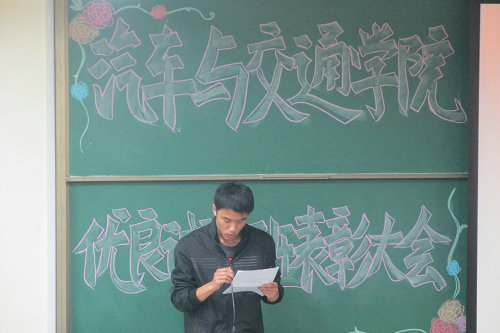 汽车与交通学院
优良 班表彰大会